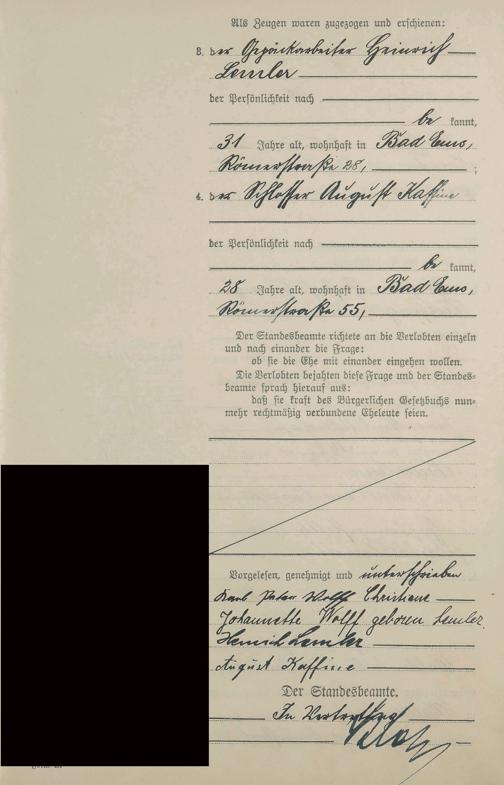 Als Zeugen waren zugezogen und erschienen:
3. der Gepäckarbeiter Heinrich
Lemler
der Persönlichkeit nach
be kannt,
31 Jahre alt, wohnhaft in Bad Ems,
Römerstraße 28, ;
4. der Schlosser August Kaffine
der Persönlichkeit nach
be kannt,
28 Jahre alt, wohnhaft in Bad Ems,
Römerstraße 55,
Der Standesbeamte richtete an die Verlobten einzeln
und nach einander die Frage:
ob sie die Ehe mit einander eingehen wollen.
Die Verlobten bejahten diese Frage und der Standes-
beamte sprach hierauf aus:
daß sie kraft des Bürgerlichen Gesetzbuchs nun-
mehr rechtmäßig verbundene Eheleute seien.
Vorgelesen, genehmigt und unterschrieben
Karl Peter Wolff Christiane
Johannette Wolff geboren Lemler.
Heinrich Lemler
August Kaffine
Der Standesbeamte.
In Vertretung